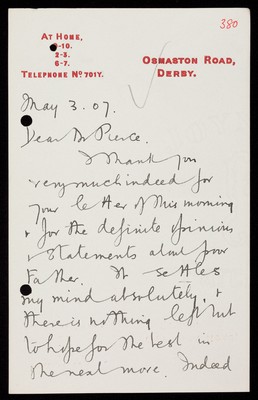 380
AT HOME,
9-10.
2-3.
6-7.
TELEPHONE Nº 701Y.
OSMASTON ROAD,
DERBY.
May 3. 07.
Dear Dr Pierce.
I thank you
very much indeed for
your letter of this morning
& for the definite opinions
& statements about poor
Father. It settles
my mind absolutely, &
there is nothing left but
to hope for the best in
the next move. Indeed